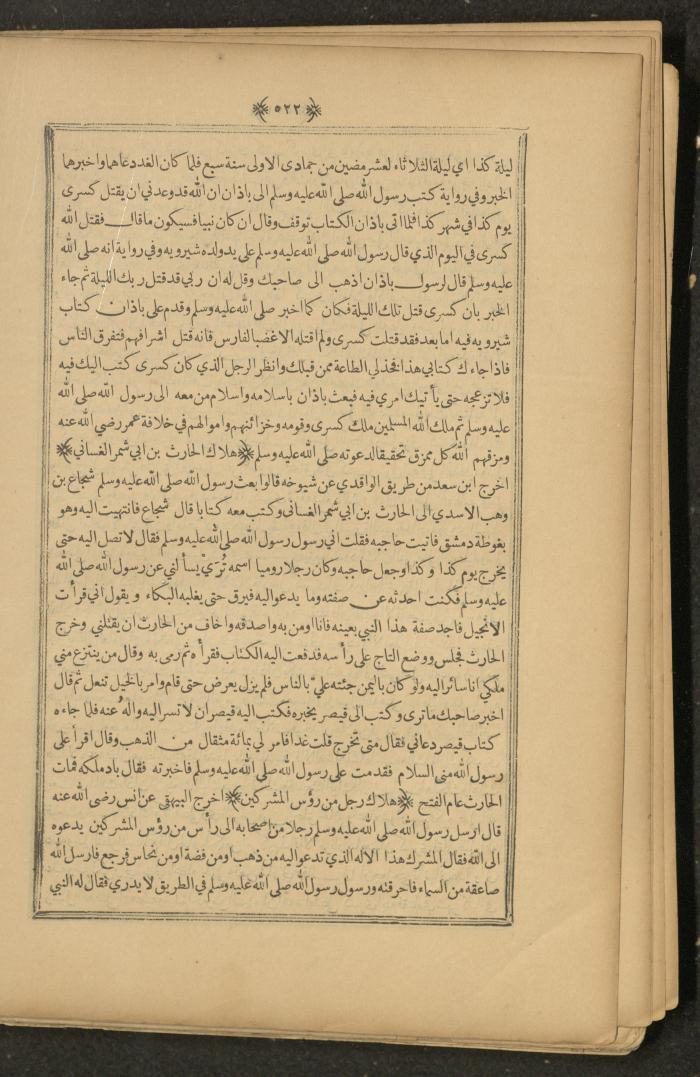 ﴿ ٥٢٢ ﴾
ليلة كذا اي ليلة الثلاثاء لعشر مضين من جمادى الاولى سنة سبع فلما كان الغد دعاهما واخبرهما
الخبر وفي رواية كتب رسول الله صلى الله عليه وسلم الى باذان ان الله قد وعدني ان يقتل كسرى
يوم كذا في شهر كذا فلما اتى باذان الكتاب توقف وقال ان كان نبيا فسيكون ما قال فقتل الله
كسرى في اليوم الذي قال رسول الله صلى الله عليه وسلم على يد ولده شيرويه وفي رواية انه صلى الله
عليه وسلم قال لرسول باذان اذهب الى صاحبك وقل له ان ربي قد قتل ربك الليلة ثم جاء
الخبر بان كسرى قتل تلك الليلة فكان كما اخبر صلى الله عليه وسلم وقدم على باذان كتاب
شيرويه فيه اما بعد فقد قتلت كسرى ولم اقتله الا غضبا لفارس فانه قتل اشرافهم فتفرق الناس
فاذا جاءك كتابي هذا فخذ لي الطاعة ممن قبلك وانظر الرجل الذي كان كسرى كتب اليك فيه
فلا تزعجه حتى يأتيك امري فيه فبعث باذان باسلامه واسلام من معه الى رسول الله صلى الله
عليه وسلم ثم ملك الله المسلمين ملك كسرى وقومه وخزائنهم واموالهم في خلافة عمر رضي الله عنه
ومزقهم الله كل ممزق تحقيقا لدعوته صلى الله عليه وسلم ﴿ هلاك الحارث بن ابي شمر الغساني ﴾
اخرج ابن سعد من طريق الواقدي عن شيوخه قالوا بعث رسول الله صلى الله عليه وسلم شجاع بن
وهب الاسدي الى الحارث بن ابي شمر الغساني وكتب معه كتابا قال شجاع فانتهيت اليه وهو
بغوطة دمشق فاتيت حاجبه فقلت اني رسول رسول الله صلى الله عليه وسلم فقال لا تصل اليه حتى
يخرج يوم كذا وكذا وجعل حاجبه وكان رجلا روميا اسمه تُرَيّ يسألني عن رسول الله صلى الله
عليه وسلم فكنت احدثه عن صفته وما يدعو اليه فيرق حتى يغلبه البكاء و يقول اني قرأت
الانجيل فاجد صفة هذا النبي بعينه فانا اومن به واصدقه واخاف من الحارث ان يقتلني وخرج
الحارث فجلس ووضع التاج على رأسه فدفعت اليه الكتاب فقرأه ثم رمى به وقال من ينتزع مني
ملكي انا سائر اليه ولو كان باليمن جئته عليّ بالناس فلم يزل يعرض حتى قام وامر بالخيل تنعل ثم قال
اخبر صاحبك ما ترى وكتب الى قيصر يخبره فكتب اليه قيصر ان لا تسر اليه والْهُ عنه فلما جاءه
كتاب قيصر دعاني فقال متى تخرج قلت غدا فامر لي بمائة مثقال من الذهب وقال اقرأ على
رسول الله مني السلام فقدمت على رسول الله صلى الله عليه وسلم فاخبرته فقال باد ملكه فمات
الحارث عام الفتح ﴿ هلاك رجل من رؤس المشركين ﴾ اخرج البيهقي عن انس رضي الله عنه
قال ارسل رسول الله صلى الله عليه وسلم رجلا من اصحابه الى رأس من رؤس المشركين يدعوه
الى الله فقال المشرك هذا الاله الذي تدعو اليه من ذهب او من فضة او من نحاس فرجع فارسل الله
صاعقة من السماء فاحرقته ورسول رسول الله صلى الله عليه وسلم في الطريق لا يدري فقال له النبي